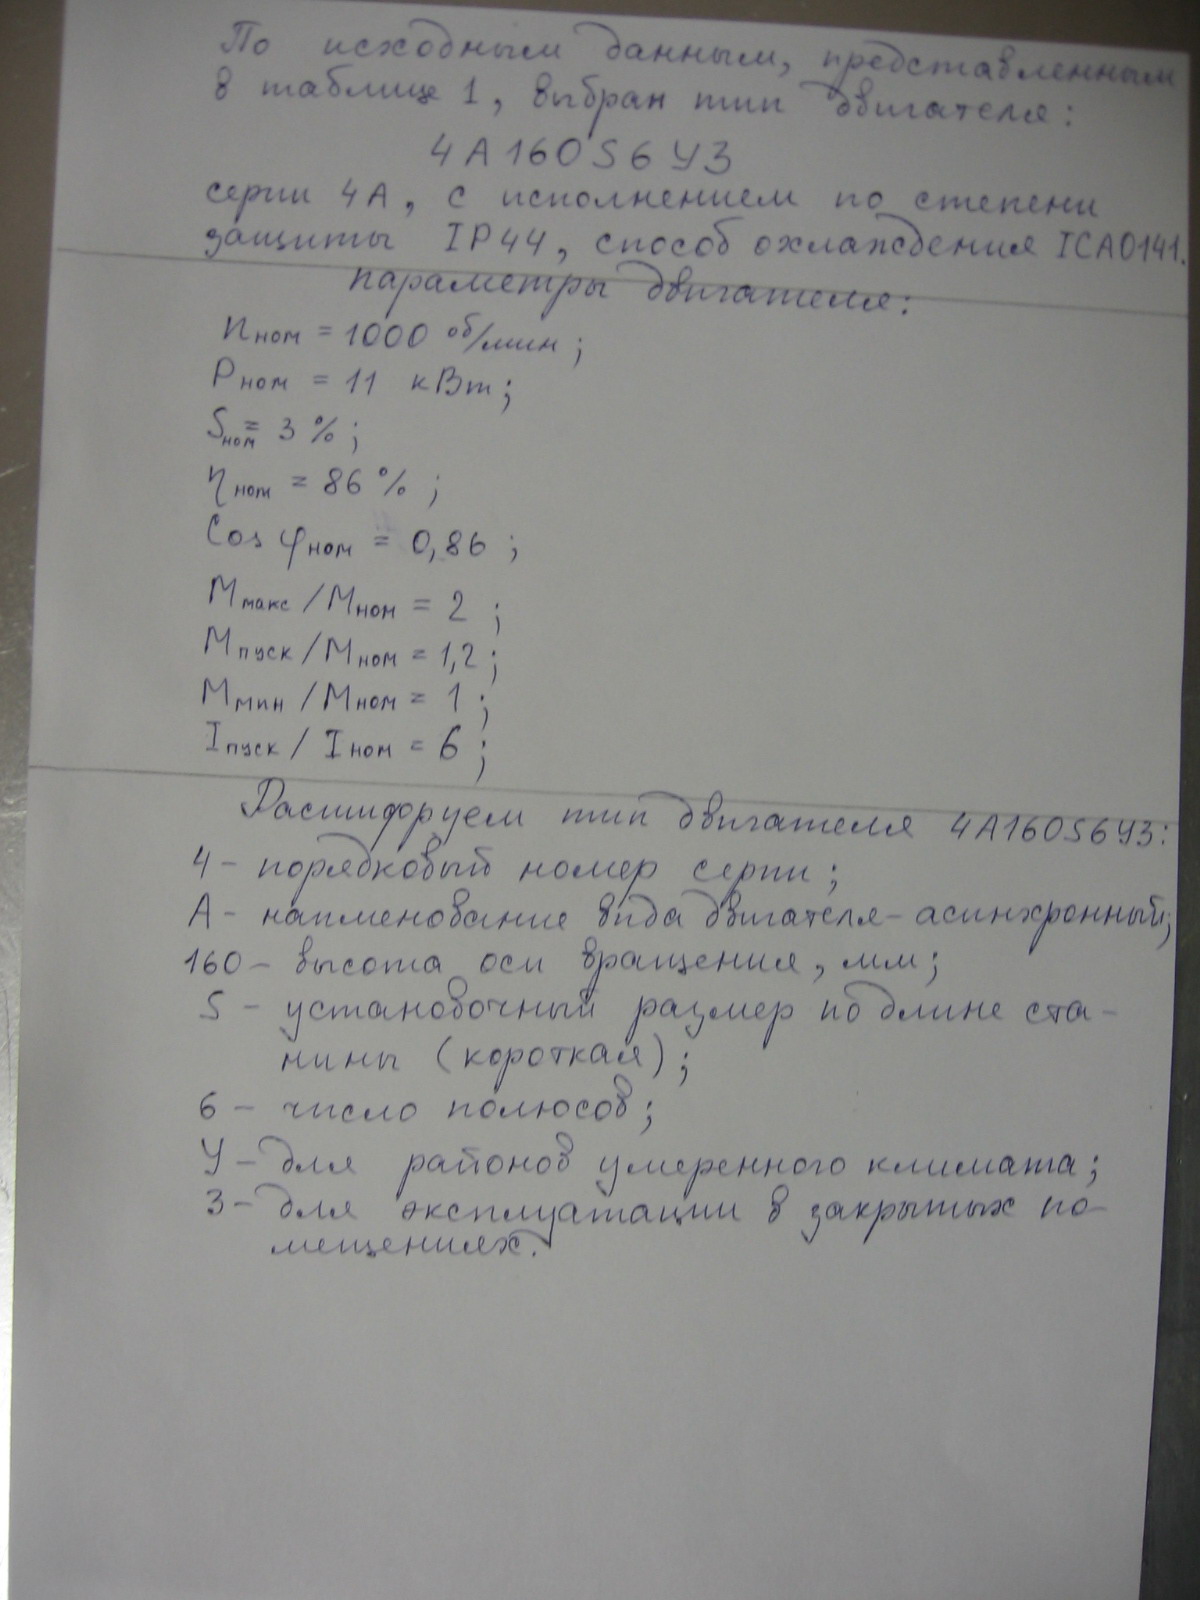 По исходным данным, представленным
в таблице 1, выбран тип двигателя:
4А160S6У3
серии 4А, с исполнением по степени
защиты IP44, способ охлаждения ICA0141.
параметры двигателя:
nном = 1000 об/мин;
Pном = 11 кВт;
Sном = 3 %;
ηном = 86 %;
Cos φном = 0,86;
Mмакс / Mном = 2;
Mпуск / Mном = 1,2;
Mмин / Mном = 1;
Iпуск / Iном = 6;
Расшифруем тип двигателя 4А160S6У3:
4 - порядковый номер серии;
А - наименование вида двигателя - асинхронный;
160 - высота оси вращения, мм;
S - установочный размер по длине ста-
нины (короткая);
6 - число полюсов;
У - для районов умеренного климата;
3 - для эксплуатации в закрытых по-
мещениях.